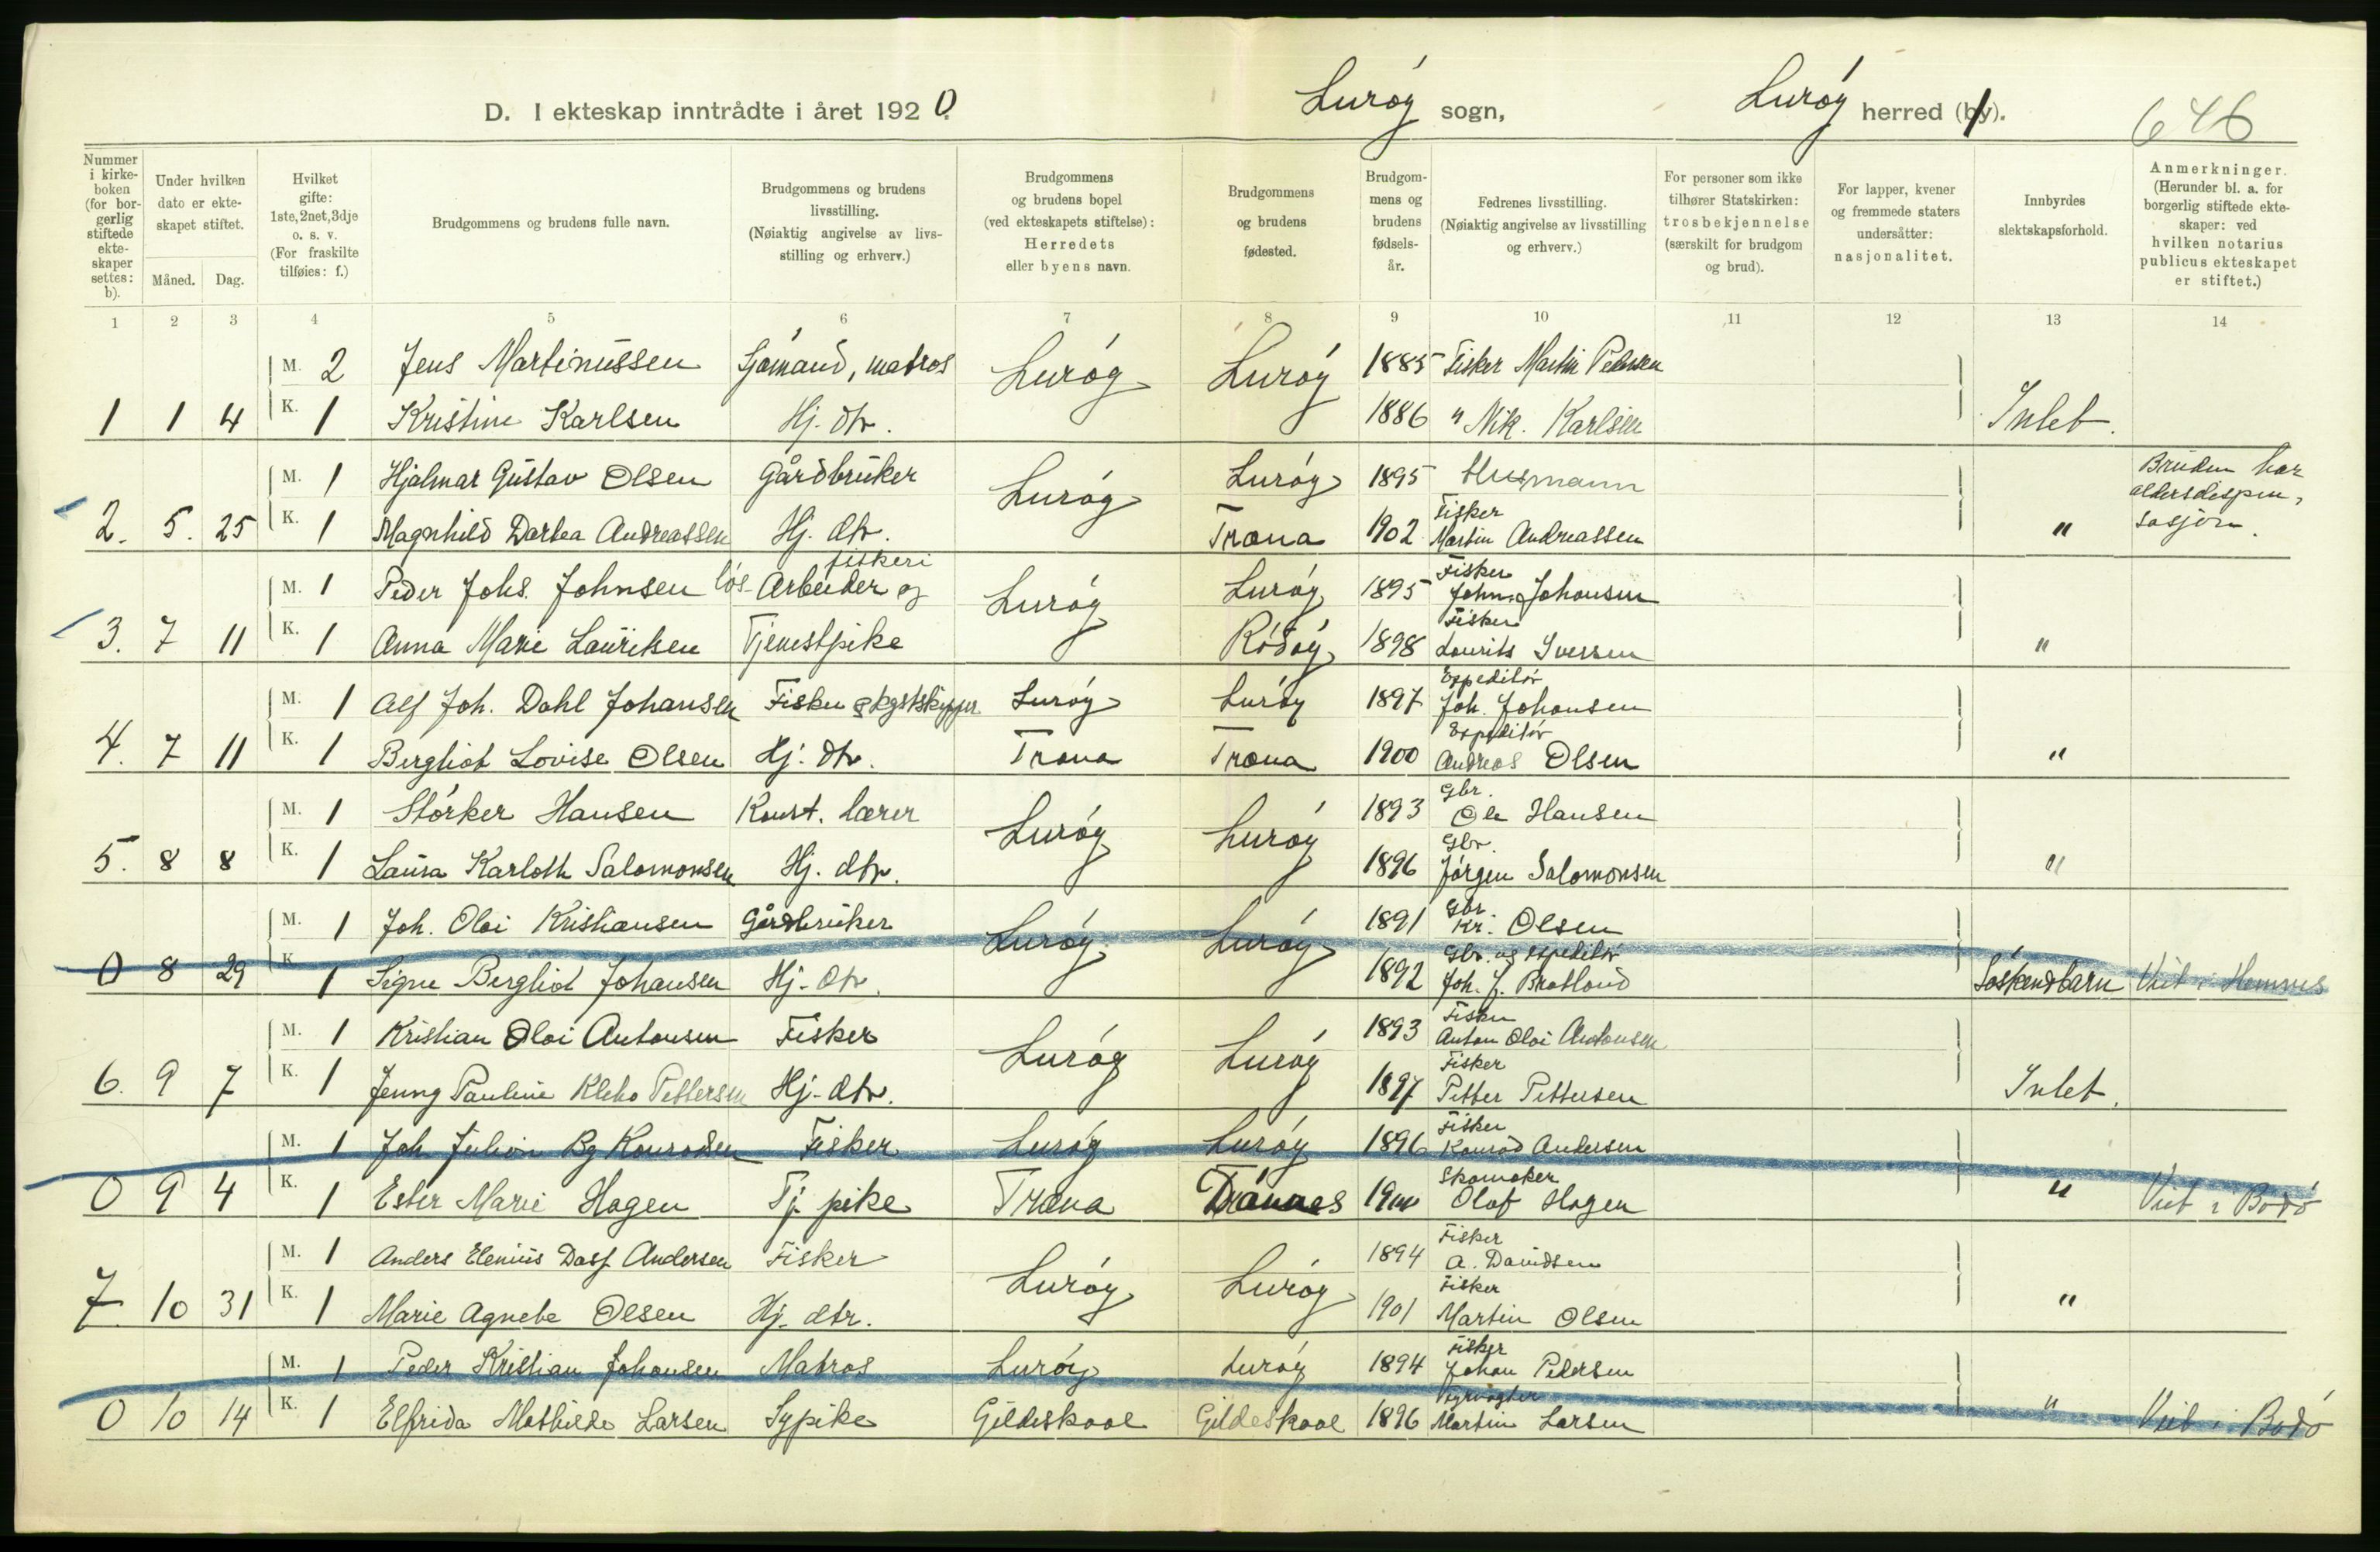 D. I ekteskap inntrådte i året 1920. Lurøy sogn, Lurøy herred (by). 646
Nummer i kirkeboken (for borgerlig stiftede ekteskaper settes: b).
Under hvilken dato er ekteskapet stiftet.
Måned. Dag.
Hvilket gifte: 1ste, 2net, 3dje o. s. v. (For fraskilte tilføies: f.)
Brudgommens og brudens fulle navn.
Brudgommens og brudens livsstilling. (Nøiaktig angivelse av livsstilling og erhverv.)
Brudgommens og brudens bopel (ved ekteskapets stiftelse): Herredets eller byens navn.
Brudgommens og brudens fødested.
Brudgommens og brudens fødselsår.
Fedrenes livsstilling. (Nøiaktig angivelse av livsstilling og erhverv.)
For personer som ikke tilhører Statskirken: trosbekjennelse (særskilt for brudgom og brud).
For lapper, kvener og fremmede staters undersåtter: nasjonalitet.
Innbyrdes slektskapsforhold.
Anmerkninger. (Herunder bl. a. for borgerlig stiftede ekteskaper: ved hvilken notarius publicus ekteskapet er stiftet.)
1 2 3 4 5 6 7 8 9 10 11 12 13 14
M. 2 Jens Martinussen Sjømand, matros Lurøy Lurøy 1885 Fisker Martin Pedersen
1 1 4 K. 1 Kristine Karlsen Hj. dtr. 1886 " Nik. Karlsen Intet.
M. 1 Hjalmar Gustav Olsen Gårdbruker Lurøy Lurøy 1895 Husmann Bruden har aldersdispensasjon.
2. 5. 25 K. 1 Magnhild Dortea Andreassen Hj. dtr. Træna 1902 Fisker Martin Andreassen "
M. 1 Peder Johs. Johnsen løs-Arbeider og fiskeri Lurøy Lurøy 1895 Fisker John Johansen
3. 7 11 K. 1 Anna Marie Lauritsen Tjenestpike Rødøy 1898 Fisker Laurits Iversen "
M. 1 Alf Joh. Dahl Johansen Fisker og kystskipper Lurøy Lurøy 1897 Expeditør Joh. Johansen
4. 7 11 K. 1 Bergliot Lovise Olsen Hj. dtr. Træna Træna 1900 Expeditør Andreas Olsen "
M. 1 Størker Hansen Konst. lærer Lurøy Lurøy 1893 Gbr. Ole Hansen
5. 8 8 K. 1 Laura Karloth Salomonsen Hj. dtr. 1896 Gbr. Jørgen Salomonsen "
M. 1 Joh. Olai Kristiansen Gårdbruker Lurøy Lurøy 1891 Gbr. Kr. Olsen
0 8 29 K. 1 Signe Bergliot Johansen Hj. dtr. 1892 Gbr. og expeditør Joh. J. Bratland Søskendbarn Viet i Hemnes
M. 1 Kristian Olai Antonsen Fisker Lurøy Lurøy 1893 Fisker Anton Olai Antonsen
6. 9 7 K. 1 Jenny Pauline Pettersen Hj. dtr. 1897 Fisker Petter Pettersen Intet.
M. 1 Joh Julian Bg Konradsen Fisker Lurøy Lurøy 1896 Fisker Konrad Andersen
0 9 4 K. 1 Ester Marie Hagen Tj. pike Træna Tranes Skomaker Olaf Hagen " Viet i Bodø
M. 1 Anders Elenius Andersen Fisker Lurøy Lurøy 1894 Fisker A. Davidsen
7 10 31 K. 1 Marie Agnete Olsen Hj. dtr. 1901 Fisker Martin Olsen "
M. 1 Peder Kristian Johansen Matros Lurøy Lurøy 1894 Fisker Johan Pedersen
0 10 14 K. 1 Elfrida Mathilde Larsen Sypike Gildeskaal Gildeskaal 1896 Fyrvogter Martin Larsen " Viet i Bodø